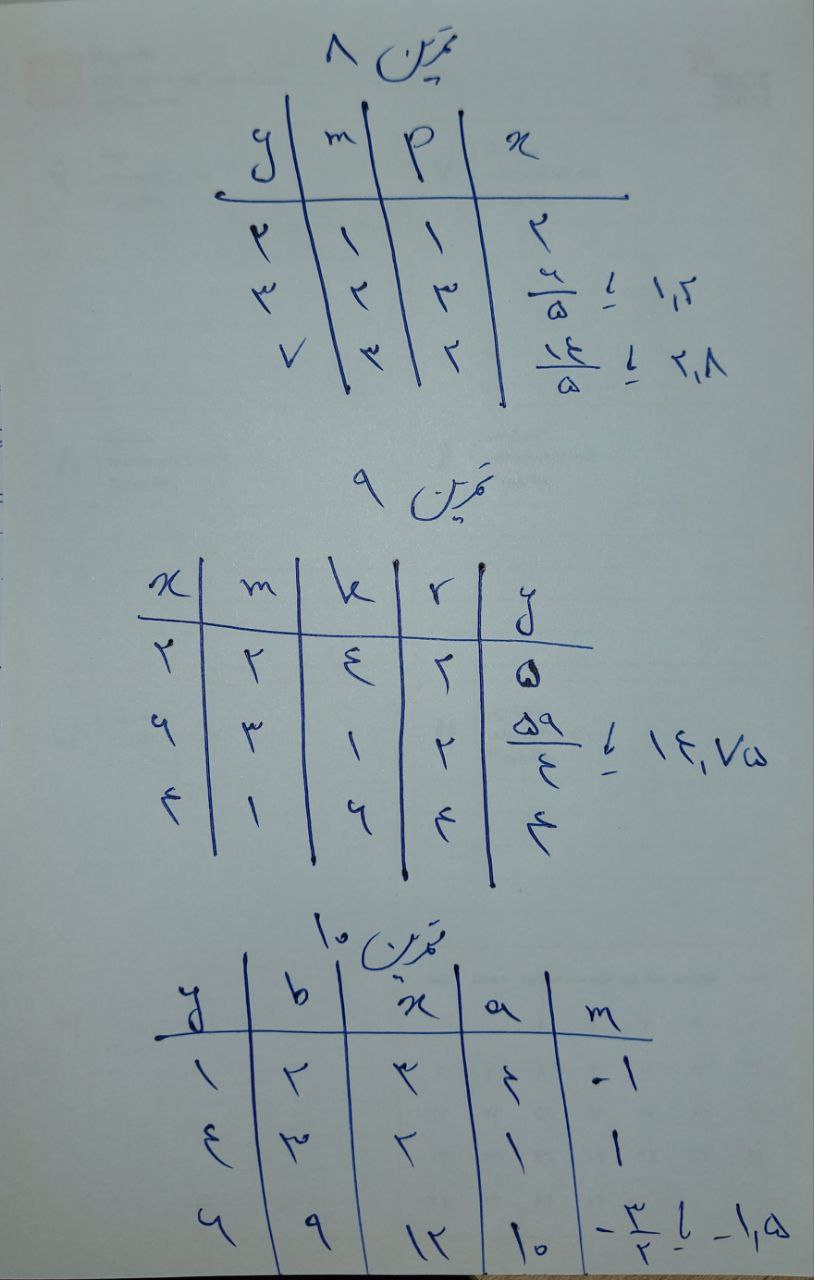 تمرین ۸
y m p x
۲ ۱ ۱ ۲
۳ ۲ ۳ ۶/۵ یا ۱,۲
۷ ۳ ۲ ۱۴/۵ یا ۲,۸
تمرین ۹
x m k r y
۲ ۲ ۴ ۲ ۵
۶ ۳ ۱ ۲ ۵۹/۴ یا ۱۴,۷۵
۴ ۱ ۶ ۴ ۴
تمرین ۱۰
y b x a m
۱ ۲ ۳ ۴ -۱
۴ ۳ ۲ ۱ ۱
۶ ۹ ۱۲ ۱۰ -۳/۲ یا -۱,۵